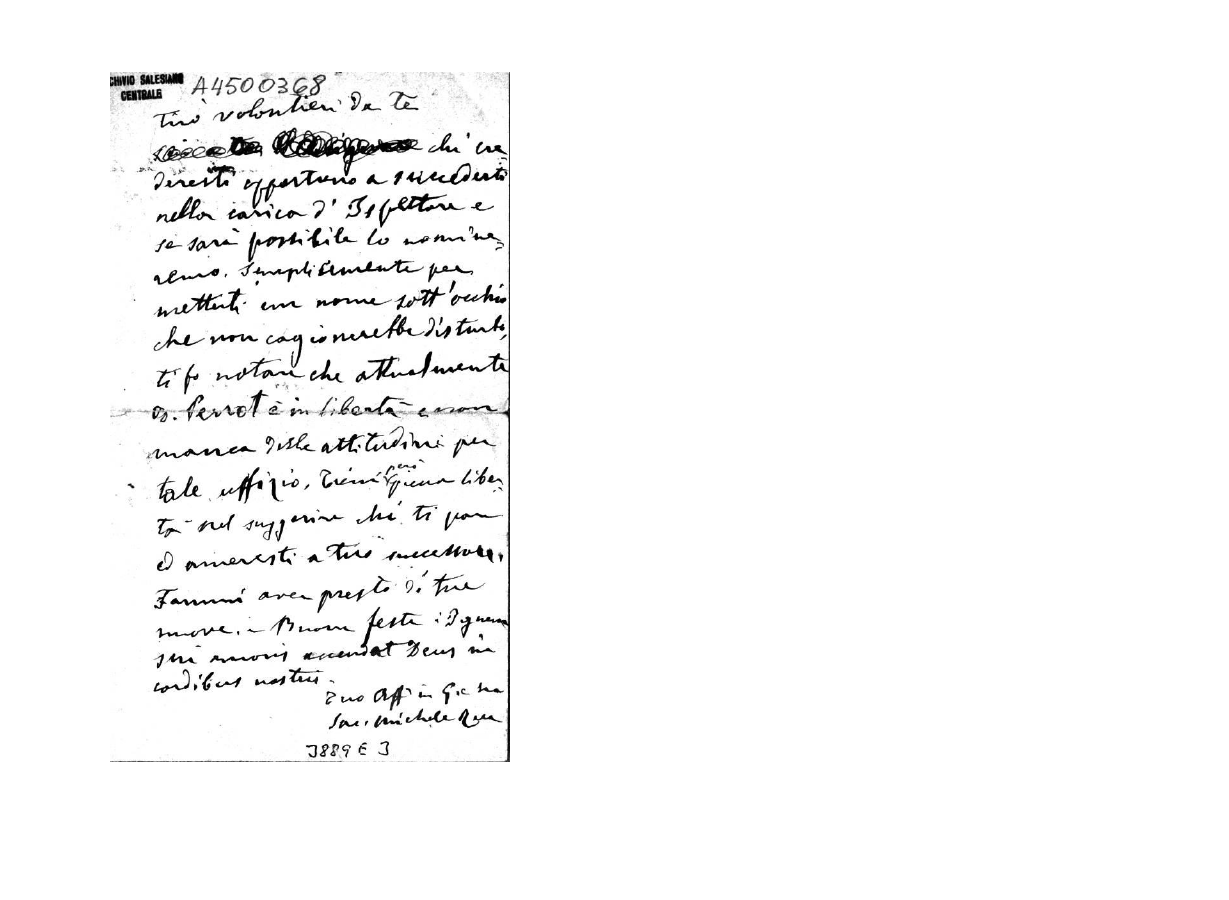 CHIVIO SALESIANO
CENTRALE
A4500368
tirò volontieri da te
chi cre
deresti opportuno a succederti
nella carica d' Ispettore e
se sarà possibile lo nomine,
remo. Semplicemente per
metterti un nome sott'occhio
che non cagionerebbe disturbo,
ti fo notare che attualmente
D. Perrot è in libertà e non
manca delle attitudini per
tale uffizio. Tieni però piena liber
tà nel suggerire chi ti pare
ed ameresti a tuo successore.
Fammi aver presto di tue
nuove. - Buone feste: Ignem
sui amoris accendat Deus in
cordibus nostris.
Tuo Aff in G. e Ma
Sac. Michele Rua
3889 E 3